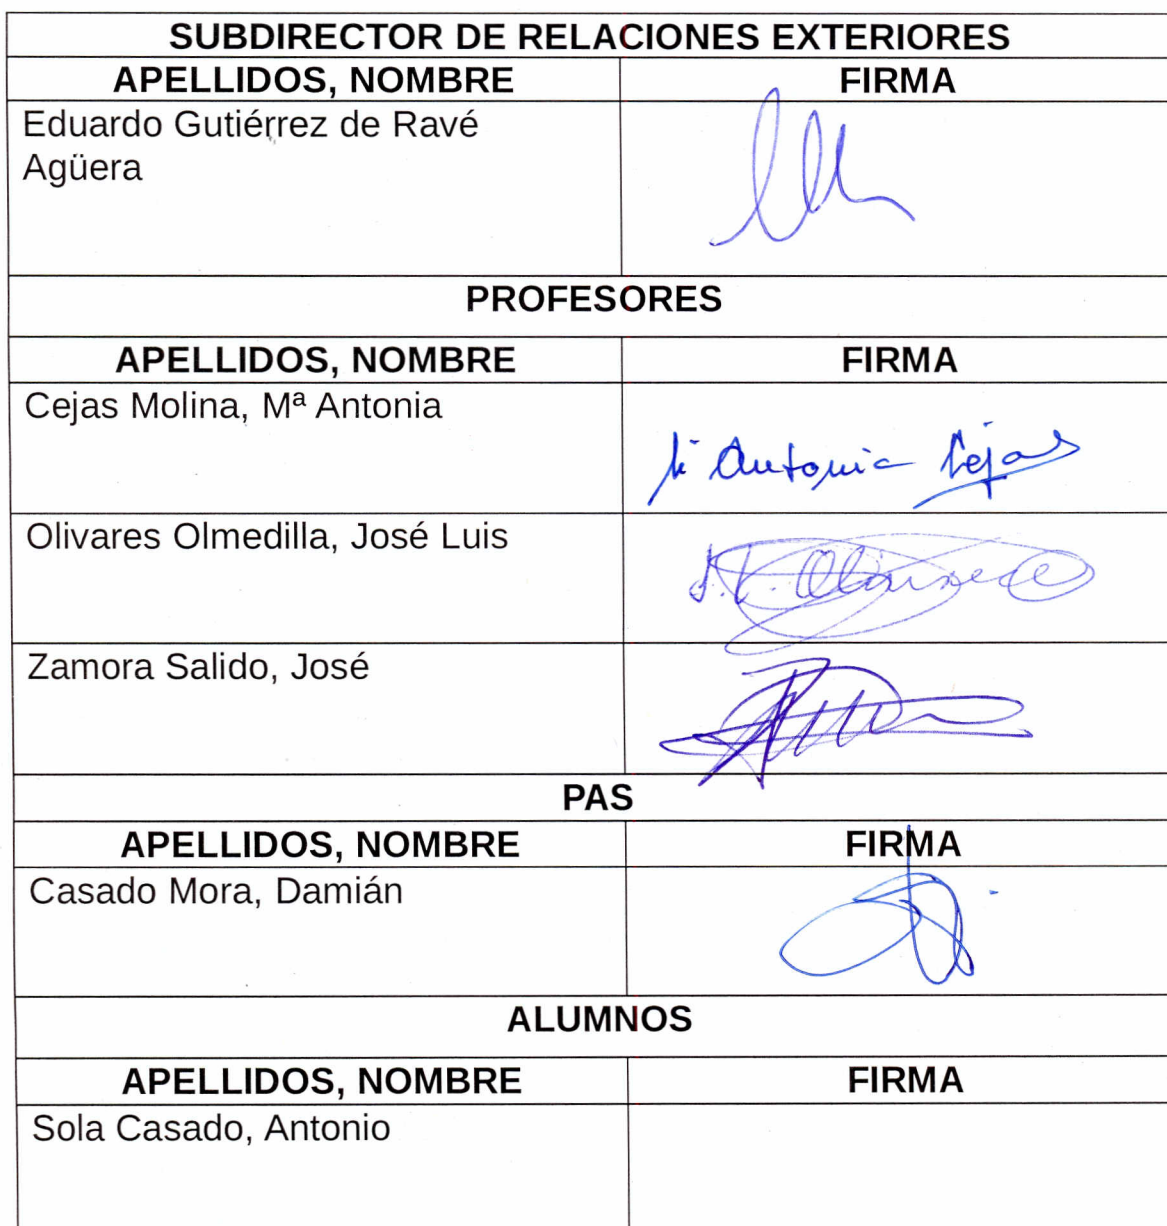 SUBDIRECTOR DE RELACIONES EXTERIORES
APELLIDOS, NOMBRE FIRMA
Eduardo Gutiérrez de Ravé
Agüera
PROFESORES
APELLIDOS, NOMBRE FIRMA
Cejas Molina, Mª Antonia
Mª Antonia Cejas
Olivares Olmedilla, José Luis
J.L. Olivares
Zamora Salido, José
PAS
APELLIDOS, NOMBRE FIRMA
Casado Mora, Damián
ALUMNOS
APELLIDOS, NOMBRE FIRMA
Sola Casado, Antonio